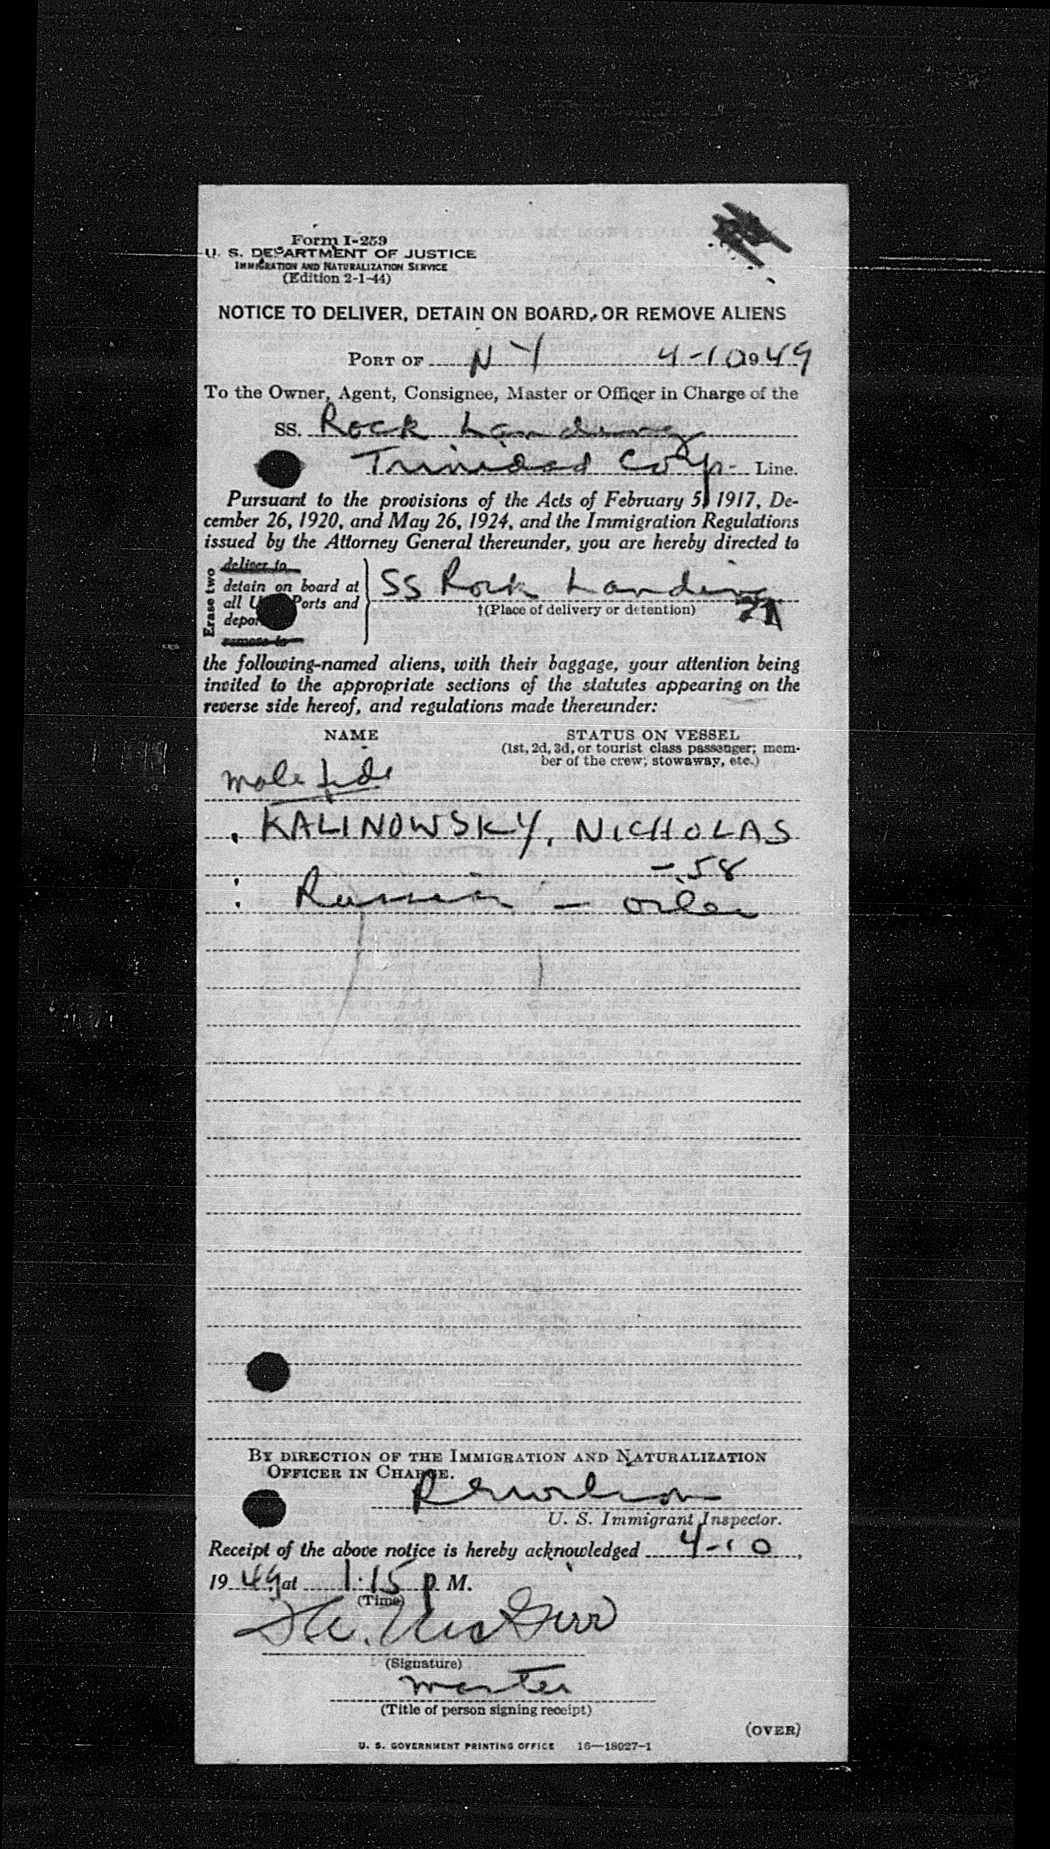 Form I-259
U. S. DEPARTMENT OF JUSTICE
IMMIGRATION AND NATURALIZATION SERVICE
(Edition 2-1-44)
NOTICE TO DELIVER, DETAIN ON BOARD, OR REMOVE ALIENS
PORT OF N Y 4-10 1949
To the Owner, Agent, Consignee, Master or Officer in Charge of the
SS. Rock Landing
Trinidad Corp. Line.
Pursuant to the provisions of the Acts of February 5, 1917, De-
cember 26, 1920, and May 26, 1924, and the Immigration Regulations
issued by the Attorney General thereunder, you are hereby directed to
Erase two
deliver to
detain on board at
all U. Ports and
depor
remove to
SS Rock Landing
†(Place of delivery or detention)
the following-named aliens, with their baggage, your attention being
invited to the appropriate sections of the statutes appearing on the
reverse side hereof, and regulations made thereunder:
NAME STATUS ON VESSEL
(1st, 2d, 3d, or tourist class passenger; mem-
ber of the crew; stowaway, etc.)
mala fide
KALINOWSKY, NICHOLAS
- 58
Russian - oiler
BY DIRECTION OF THE IMMIGRATION AND NATURALIZATION
OFFICER IN CHARGE.
U. S. Immigrant Inspector.
Receipt of the above notice is hereby acknowledged 4-10,
1949 at 1:15 P. M.
(Time)
(Signature)
master
(Title of person signing receipt)
(OVER)
U. S. GOVERNMENT PRINTING OFFICE 16—18027-1